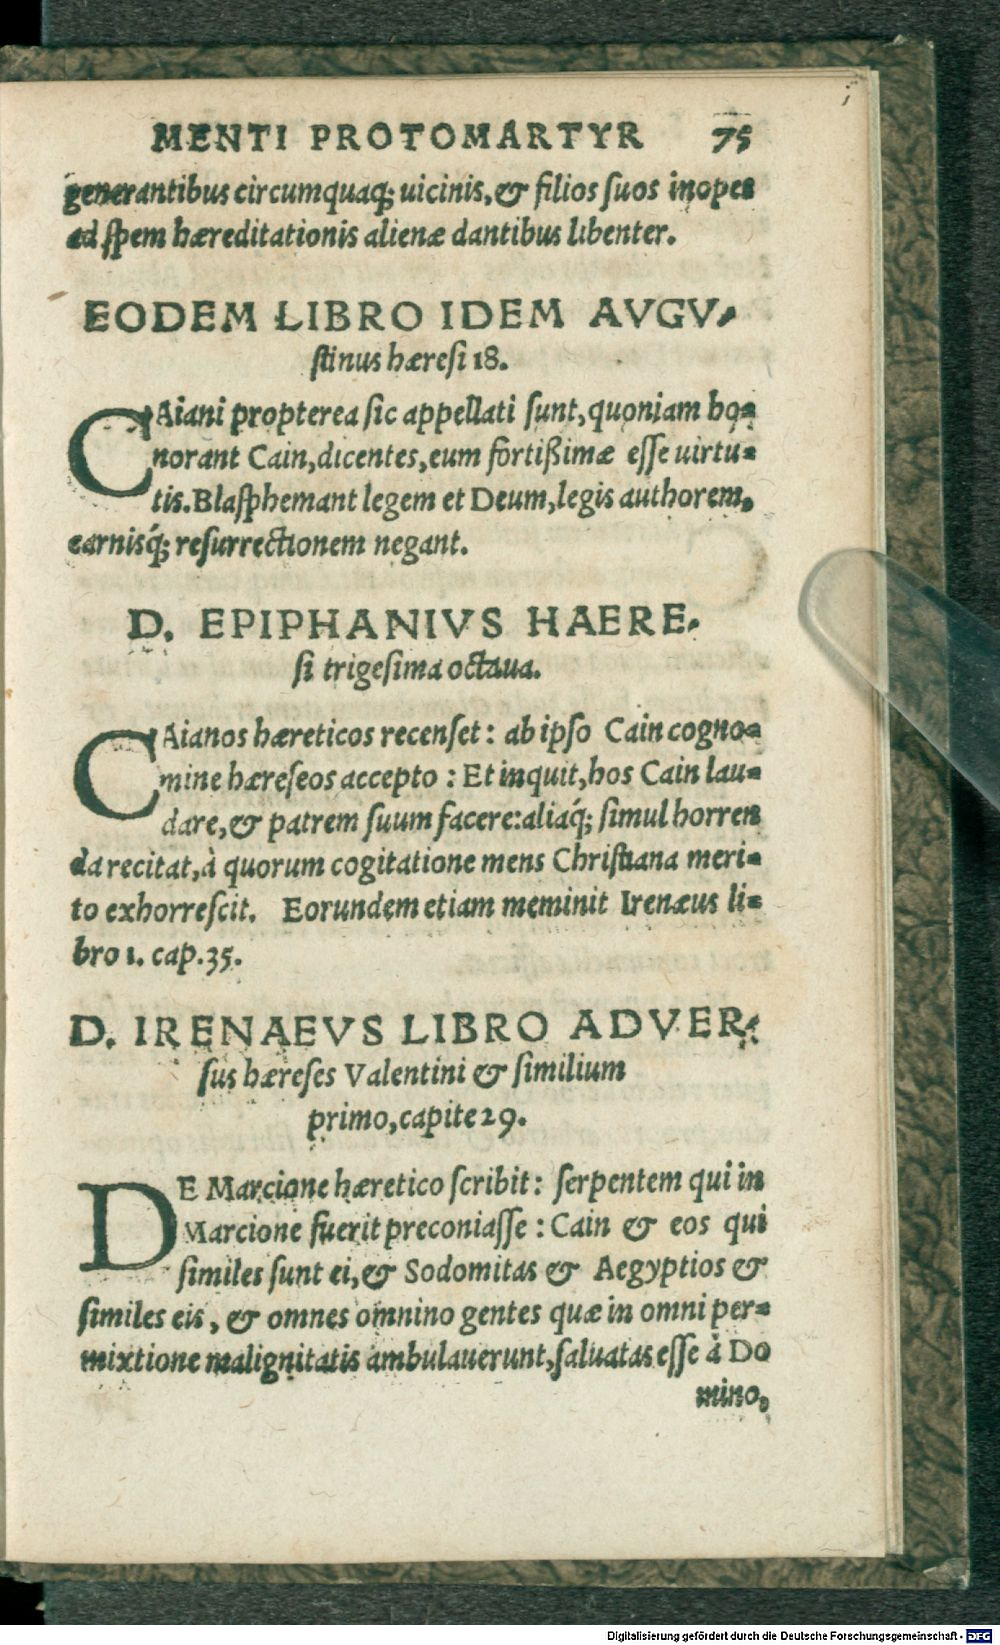 MENTI PROTOMARTYR 75
generantibus circumquaq; uicinis, & filios suos inopes
ad spem hæreditationis alienæ dantibus libenter.
EODEM LIBRO IDEM AVGV-
stinus hæresi 18.
CAiani propterea sic appellati sunt, quoniam ho-
norant Cain, dicentes, eum fortißimæ esse uirtu-
tis. Blasphemant legem et Deum, legis authorem,
carnisq́; resurrectionem negant.
D. EPIPHANIVS HAERE-
si trigesima octaua.
CAianos hæreticos recenset: ab ipso Cain cogno-
mine hæreseos accepto: Et inquit, hos Cain lau-
dare, & patrem suum facere: aliaq́; simul horren
da recitat, à quorum cogitatione mens Christiana meri-
to exhorrescit. Eorundem etiam meminit Irenæus li-
bro 1. cap. 35.
D. IRENAEVS LIBRO ADVER-
sus hæreses Valentini & similium
primo, capite 29.
DE Marcione hæretico scribit: serpentem qui in
Marcione fuerit preconiasse: Cain & eos qui
similes sunt ei, & Sodomitas & Aegyptios &
similes eis, & omnes omnino gentes quæ in omni per-
mixtione malignitatis ambulauerunt, saluatas esse à Do
mino,
Digitalisierung gefördert durch die Deutsche Forschungsgemeinschaft - DFG